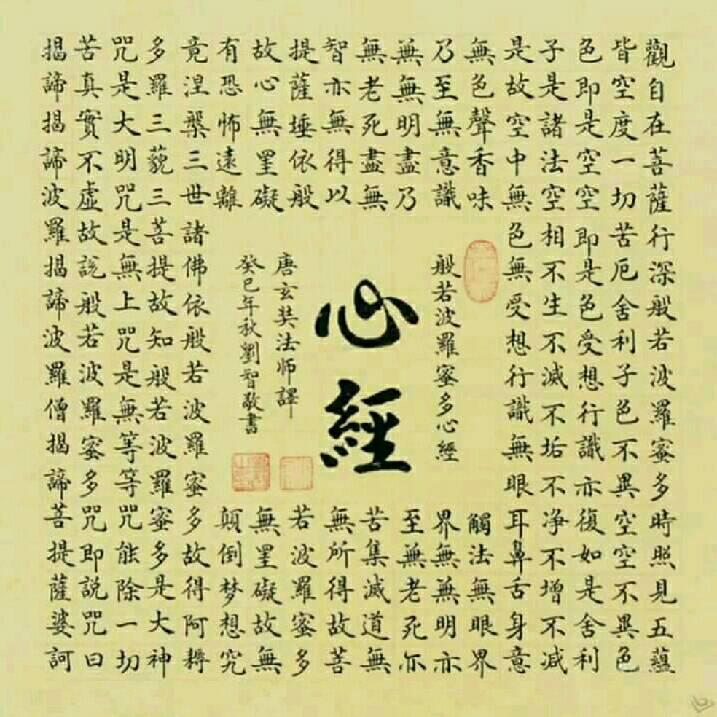 觀自在菩薩行深般若波羅蜜多時照見五蘊
皆空度一切苦厄舍利子色不異空空不異色
色即是空空即是色受想行識亦復如是舍利
子是諸法空相不生不滅不垢不净不增不減
是故空中無色無受想行識無眼耳鼻舌身意
無色聲香味觸法無眼界
乃至無意識界無無明亦
無無明盡乃至無老死亦
無老死盡無苦集滅道無
智亦無得以無所得故菩
提薩埵依般若波羅蜜多
故心無罣礙無罣礙故無
有恐怖遠離顛倒梦想究
竟涅槃三世諸佛依般若波羅蜜多故得阿耨
多羅三藐三菩提故知般若波羅蜜多是大神
咒是大明咒是無上咒是無等等咒能除一切
苦真實不虛故說般若波羅蜜多咒即説咒曰
揭諦揭諦波羅揭諦波羅僧揭諦菩提薩婆訶
般若波羅蜜多心經
心經
唐玄奘法師譯
癸巳年秋劉智敬書